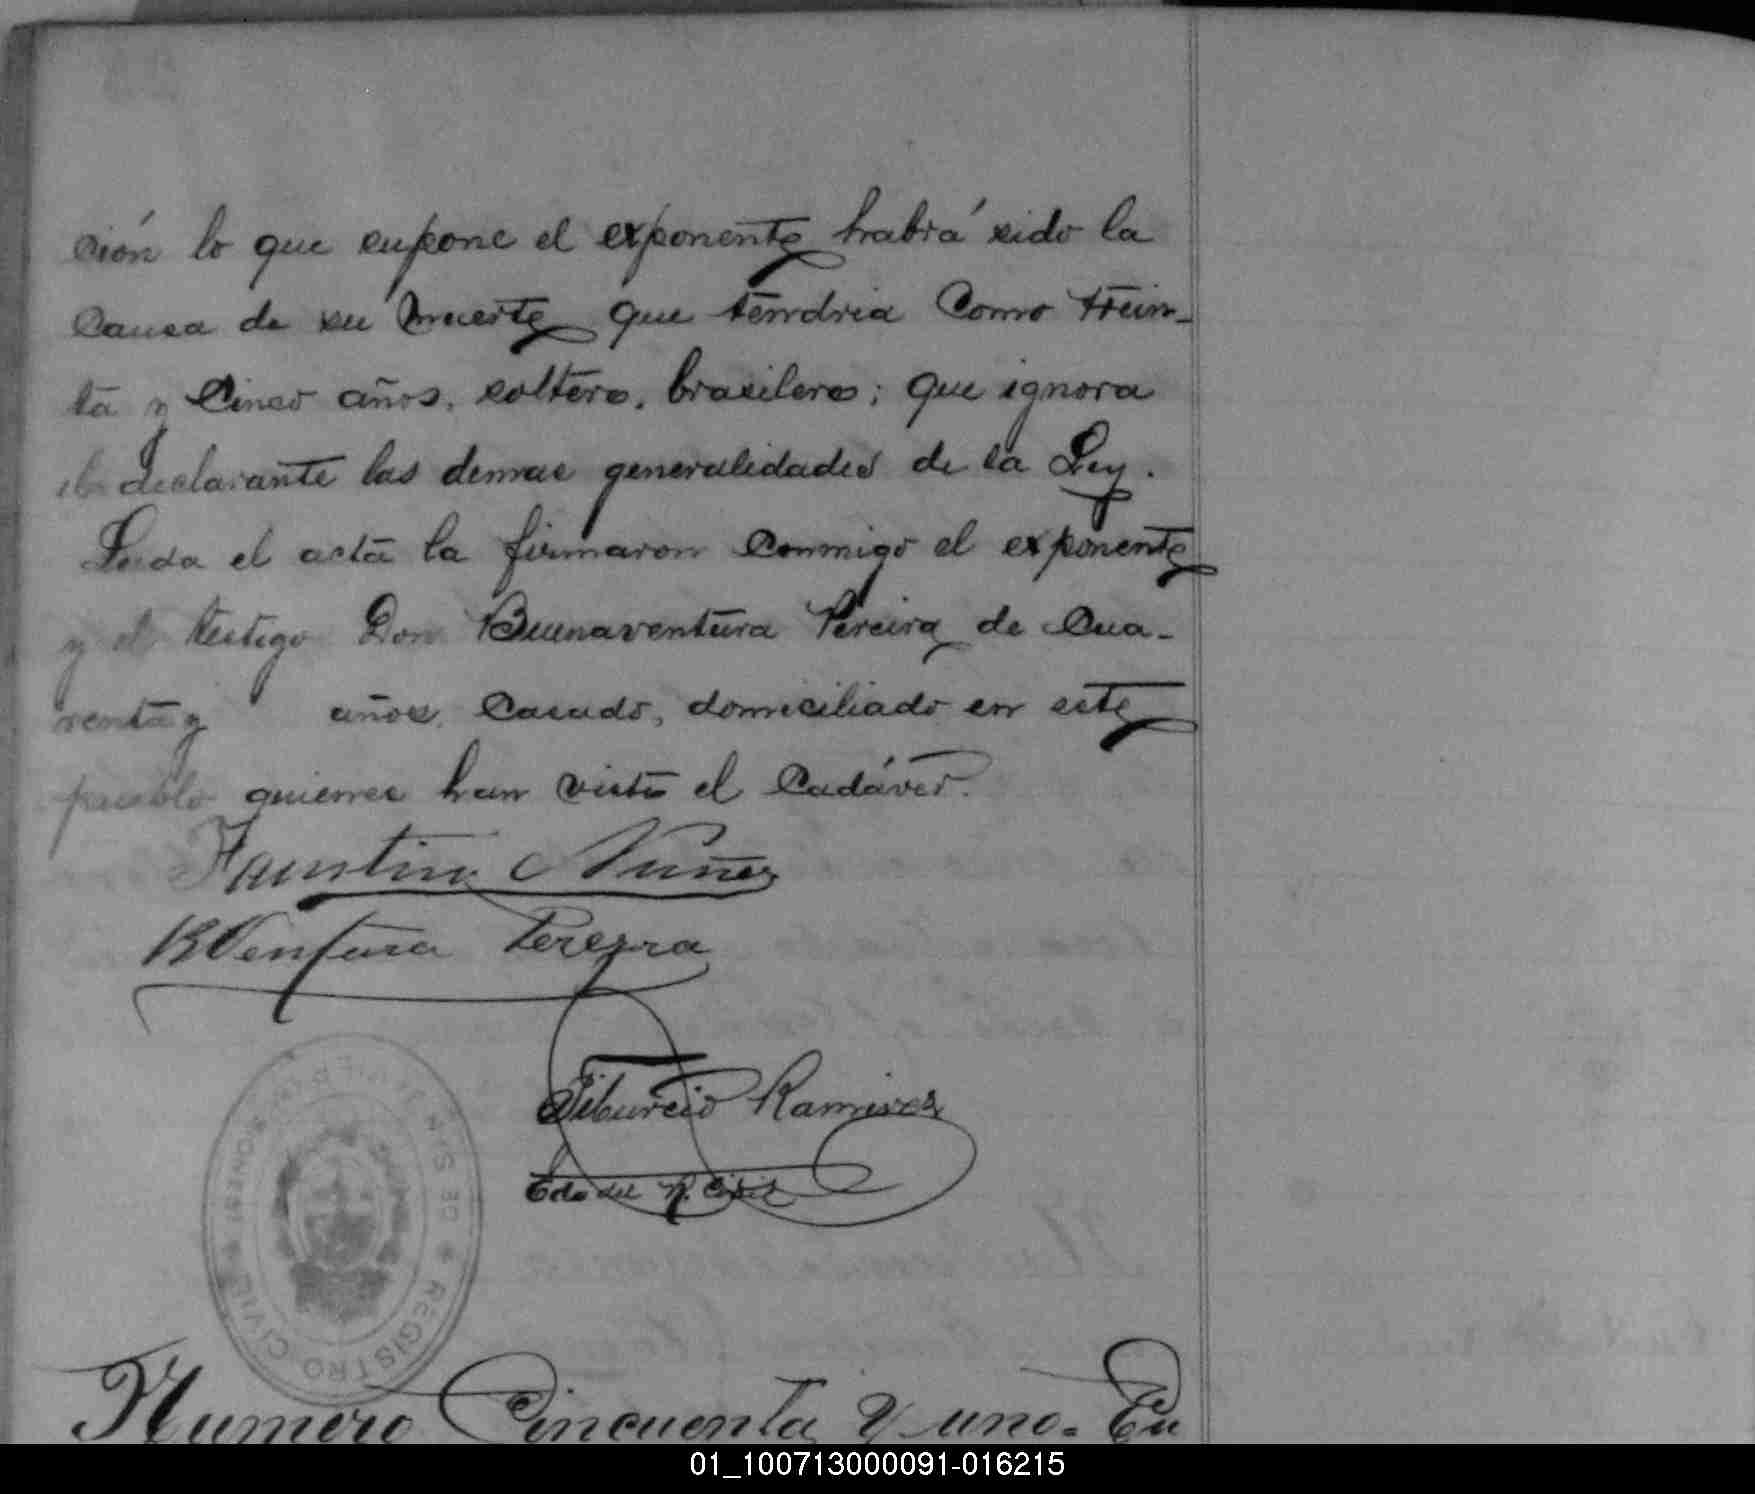 ción lo que supone el exponente habrá sido la
causa de su muerte que tendria como trein-
ta y cinco años, soltero, brasilero; que ignora
el declarante las demas generalidades de la Ley.
Leida el acta la firmaron conmigo el exponente
y el testigo Don Buenaventura Pereira de cua-
renta y años, casado, domiciliado en este
pueblo quienes han visto el cadáver.
Faustino Nuñez
BVentura Pereyra
Tiburcio Ramirez
Edo del R. Civil
REGISTRO CIVIL
Numero Cincuenta y uno. En
01_100713000091-016215